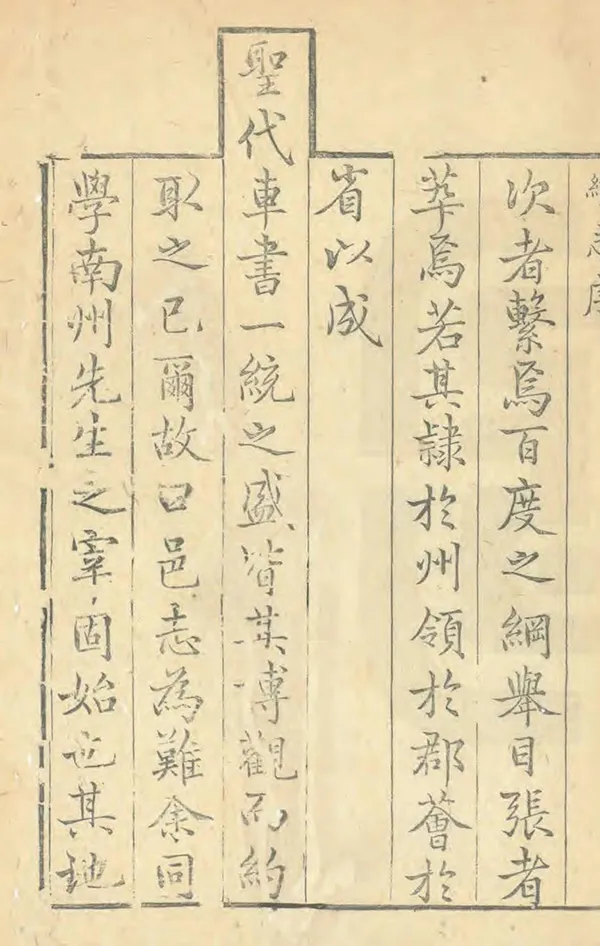 志序
次者繫焉百度之綱舉目張者
萃焉若其隷於州領於郡薈於
省以成
聖代車書一統之盛皆其博觀而約
取之已爾故曰邑志為難余同
學南州先生之宰固始也其地